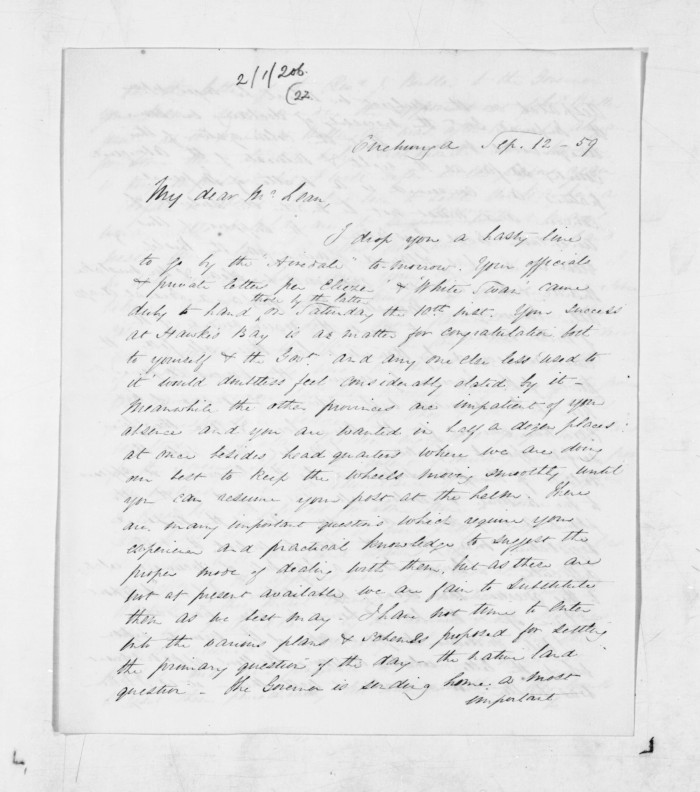 2/1/206
(22
Onehunga Sep. 12 - 59
My dear McLean,
I drop you a hasty line
to go by the "Airedale" to-morrow. Your official
& private letter per & White Swan came
those by the latter
duly to hand on Saturday the 10th inst. Your success
at Hawke's Bay is a matter for congratulation both
to yourself & the Govt. and any one else less "used to
it" would doubtless feel considerably elated by it -
Meanwhile the other provinces are impatient of your
absence and you are wanted in half a dozen places
at once besides head quarters where we are doing
our best to keep the wheels moving smoothly until
you can resume your post at the helm. There
are many important questions which require your
experience and practical knowledge to suggest the
proper mode of dealing with them, but as these are
not at present available we are fain to substitute
them as we best may. I have not time to enter
into the various plans & schemes proposed for settling
the primary question of the day - the native land
question - The Governor is sending home a most
important